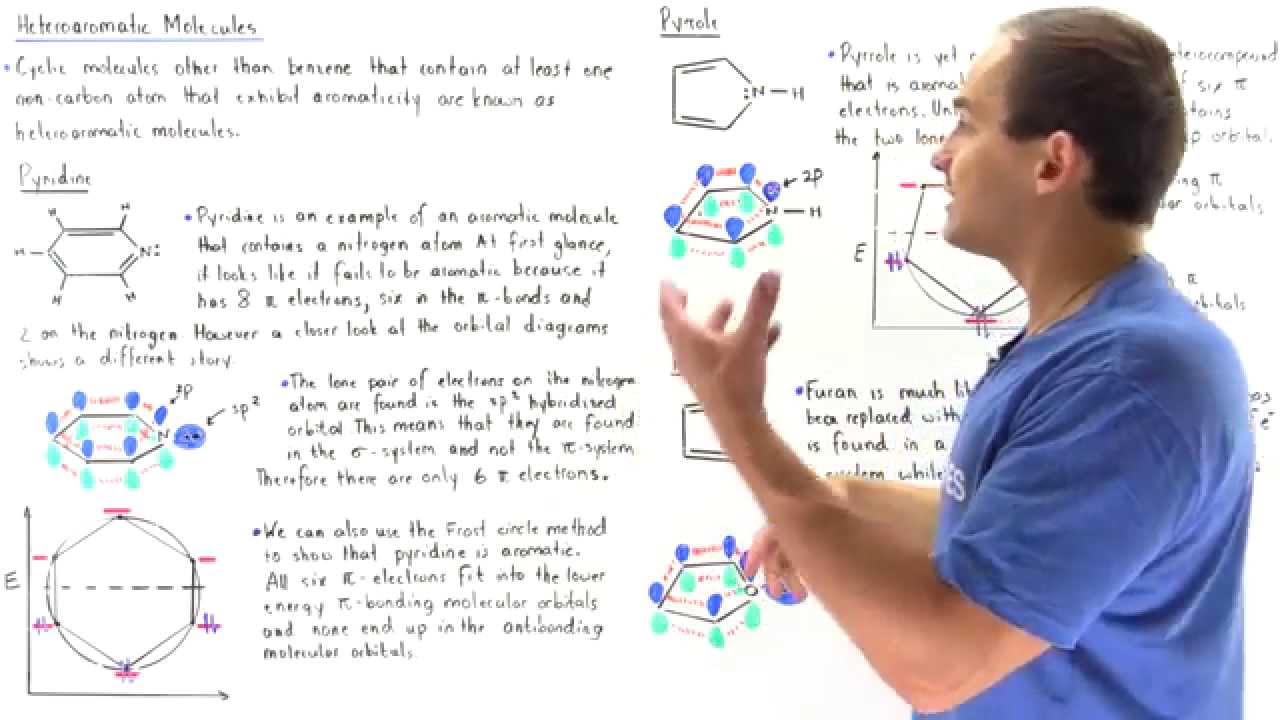 Heteroaromatic Molecules
• Cyclic molecules other than benzene that contain at least one
non-carbon atom that exhibit aromaticity are known as
heteroaromatic molecules.
Pyridine
H H
H N:
H H
• Pyridine is an example of an aromatic molecule
that contains a nitrogen atom At first glance,
it looks like it fails to be aromatic because it
has 8 π electrons, six in the π-bonds and
2 on the nitrogen. However a closer look at the orbital diagrams
shows a different story.
sp²
N
• The lone pair of electrons on the nitrogen
atom are found in the sp² hybridized
orbital This means that they are found
in the σ-system and not the π-system
Therefore there are only 6 π electrons.
E
• We can also use the Frost circle method
to show that pyridine is aromatic.
All six π-electrons fit into the lower
energy π-bonding molecular orbitals
and none end up in the antibonding
molecular orbitals.
Pyrrole
:N-H
• Pyrrole is yet
that is aroma of six π
electrons. Un
the two lone p orbital.
2p
N-H
E
π
orbitals
π
• Furan is much li
been replaced with e⁻
is found in a
system while
O
ES